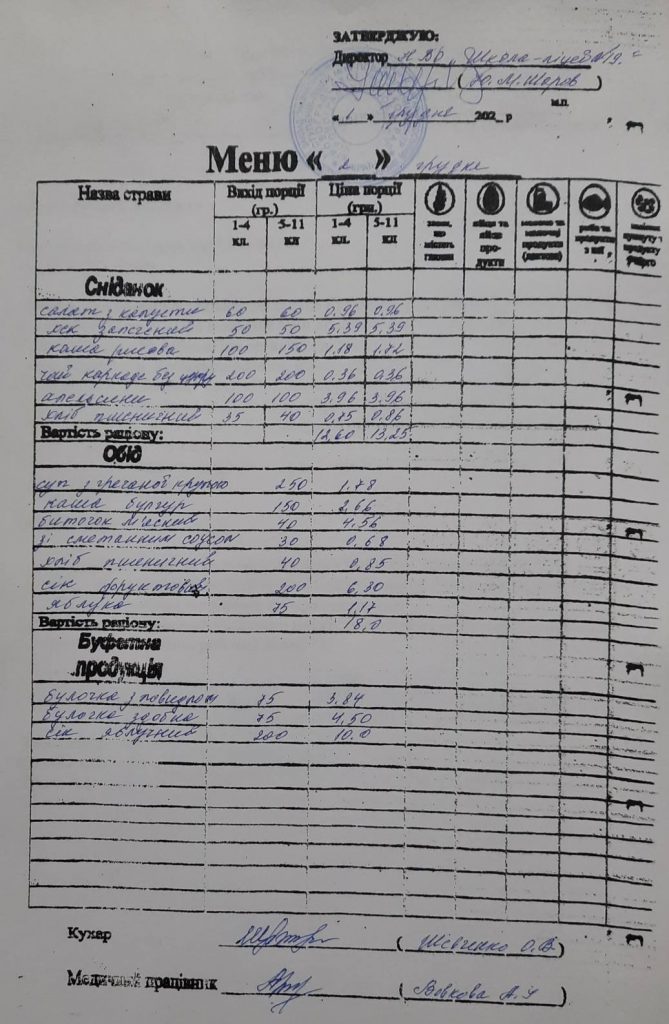 ЗАТВЕРДЖУЮ:
Директор НВО „Школа-ліцей №19."
( Ю.М.Шоров )
м.п.
« 1 » грудня 202_ р
Меню « 2 » грудня
Назва страви Вихід порції (гр.) Ціна порції (грн.)
1-4 кл. 5-11 кл 1-4 кл. 5-11 кл
Сніданок
салат з капусти 60 60 0.96 0.96
запечений 50 50 5.39 5.39
каша рисова 100 150 1.18 1.72
чай каркаде без цукру 200 200 0.36 0.36
апельсини 100 100 3.96 3.96
хліб пшеничний 35 40 0.75 0.86
Вартість раціону: 12.60 13.25
Обід
суп з гречаної крупою 250 1.78
каша булгур 150 2.66
биточок м'ясний 40 4.56
зі сметанним соусом 30 0.68
хліб пшеничний 40 0.85
сік фруктовий 200 6.30
яблуко 75 1.17
Вартість раціону: 18,0
Буфетна
продукція
булочка з повидлом 75 3.84
булочка здобна 75 4.50
сік яблучний 200 10.0
Кухар ( Шевченко О.В )
Медичний працівник ( Вовкова А. )